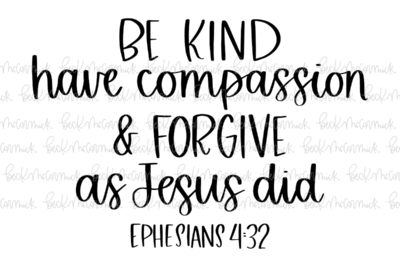 BE KIND
have compassion
& FORGIVE
as Jesus did
EPHESIANS 4:32